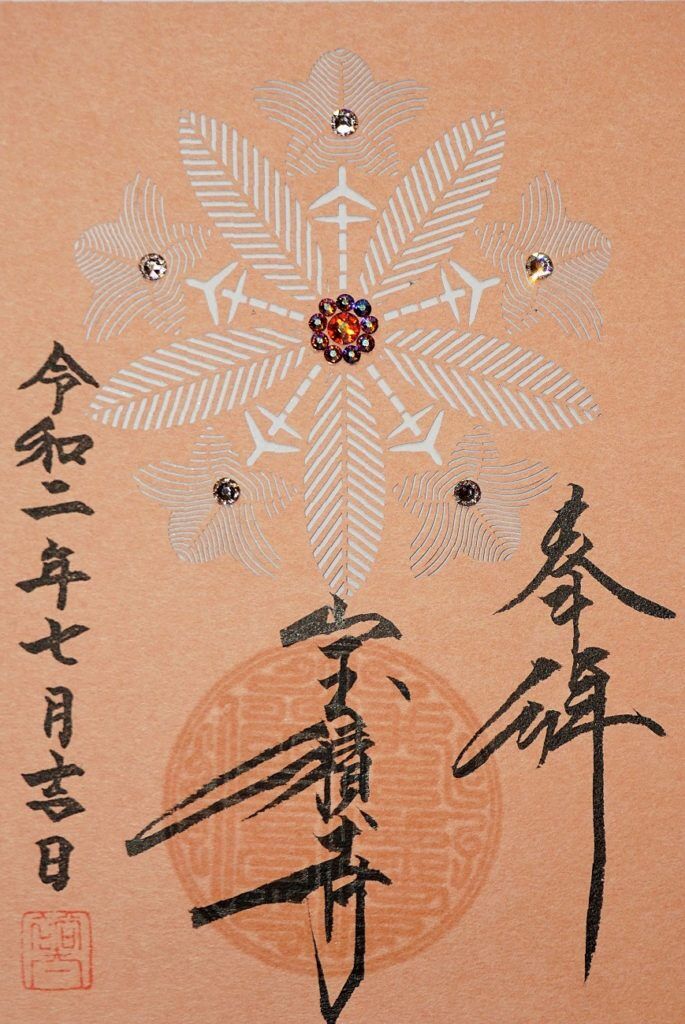 奉拝
宝積寺
令和二年七月吉日